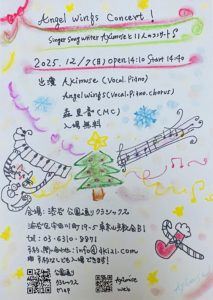 Angel wings Concert!
Singer song writer Akimuseと11人のコンサート♪
2025. 12/7(日) open 14:10 Start 14:40
出演 Akimuse (Vocal. Piano)
Angel wings (Vocal. Piano. chorus)
森里音 (MC)
入場無料
会場: 渋谷 公園通りクラシックス
渋谷区宇田川町19-5 東京山手教会B1
tel: 03-6310-8871
公園通り
クラシックス
Akimuse
web